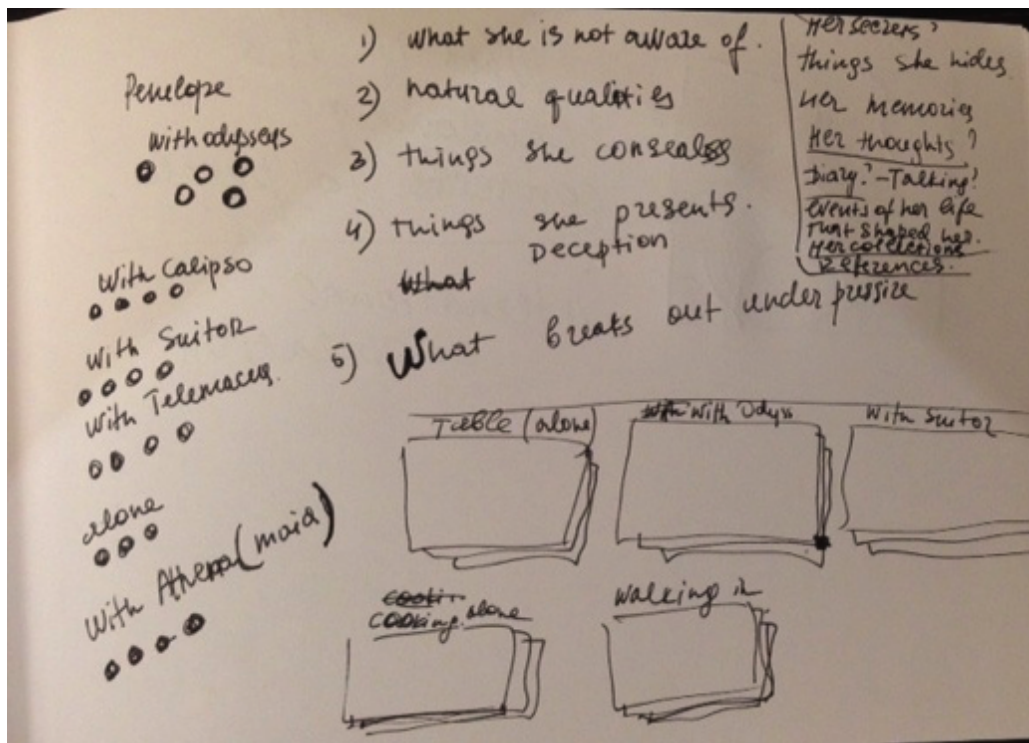 Penelope
with odysseys
With Calipso
with Suitor
with Telemacus.
alone
with Athena (maid)
1) what she is not aware of.
2) natural qualities
3) things she consealss
4) things she presents.
Deception
What
5) What breaks out under pressize
Her secrers?
things she hides
Her memories
Her thoughts?
Diary? - Talking?
events of her life
that shaped her.
Her collections
References.
Table (alone)
with Odyss
with suitor
cooking alone
walking in